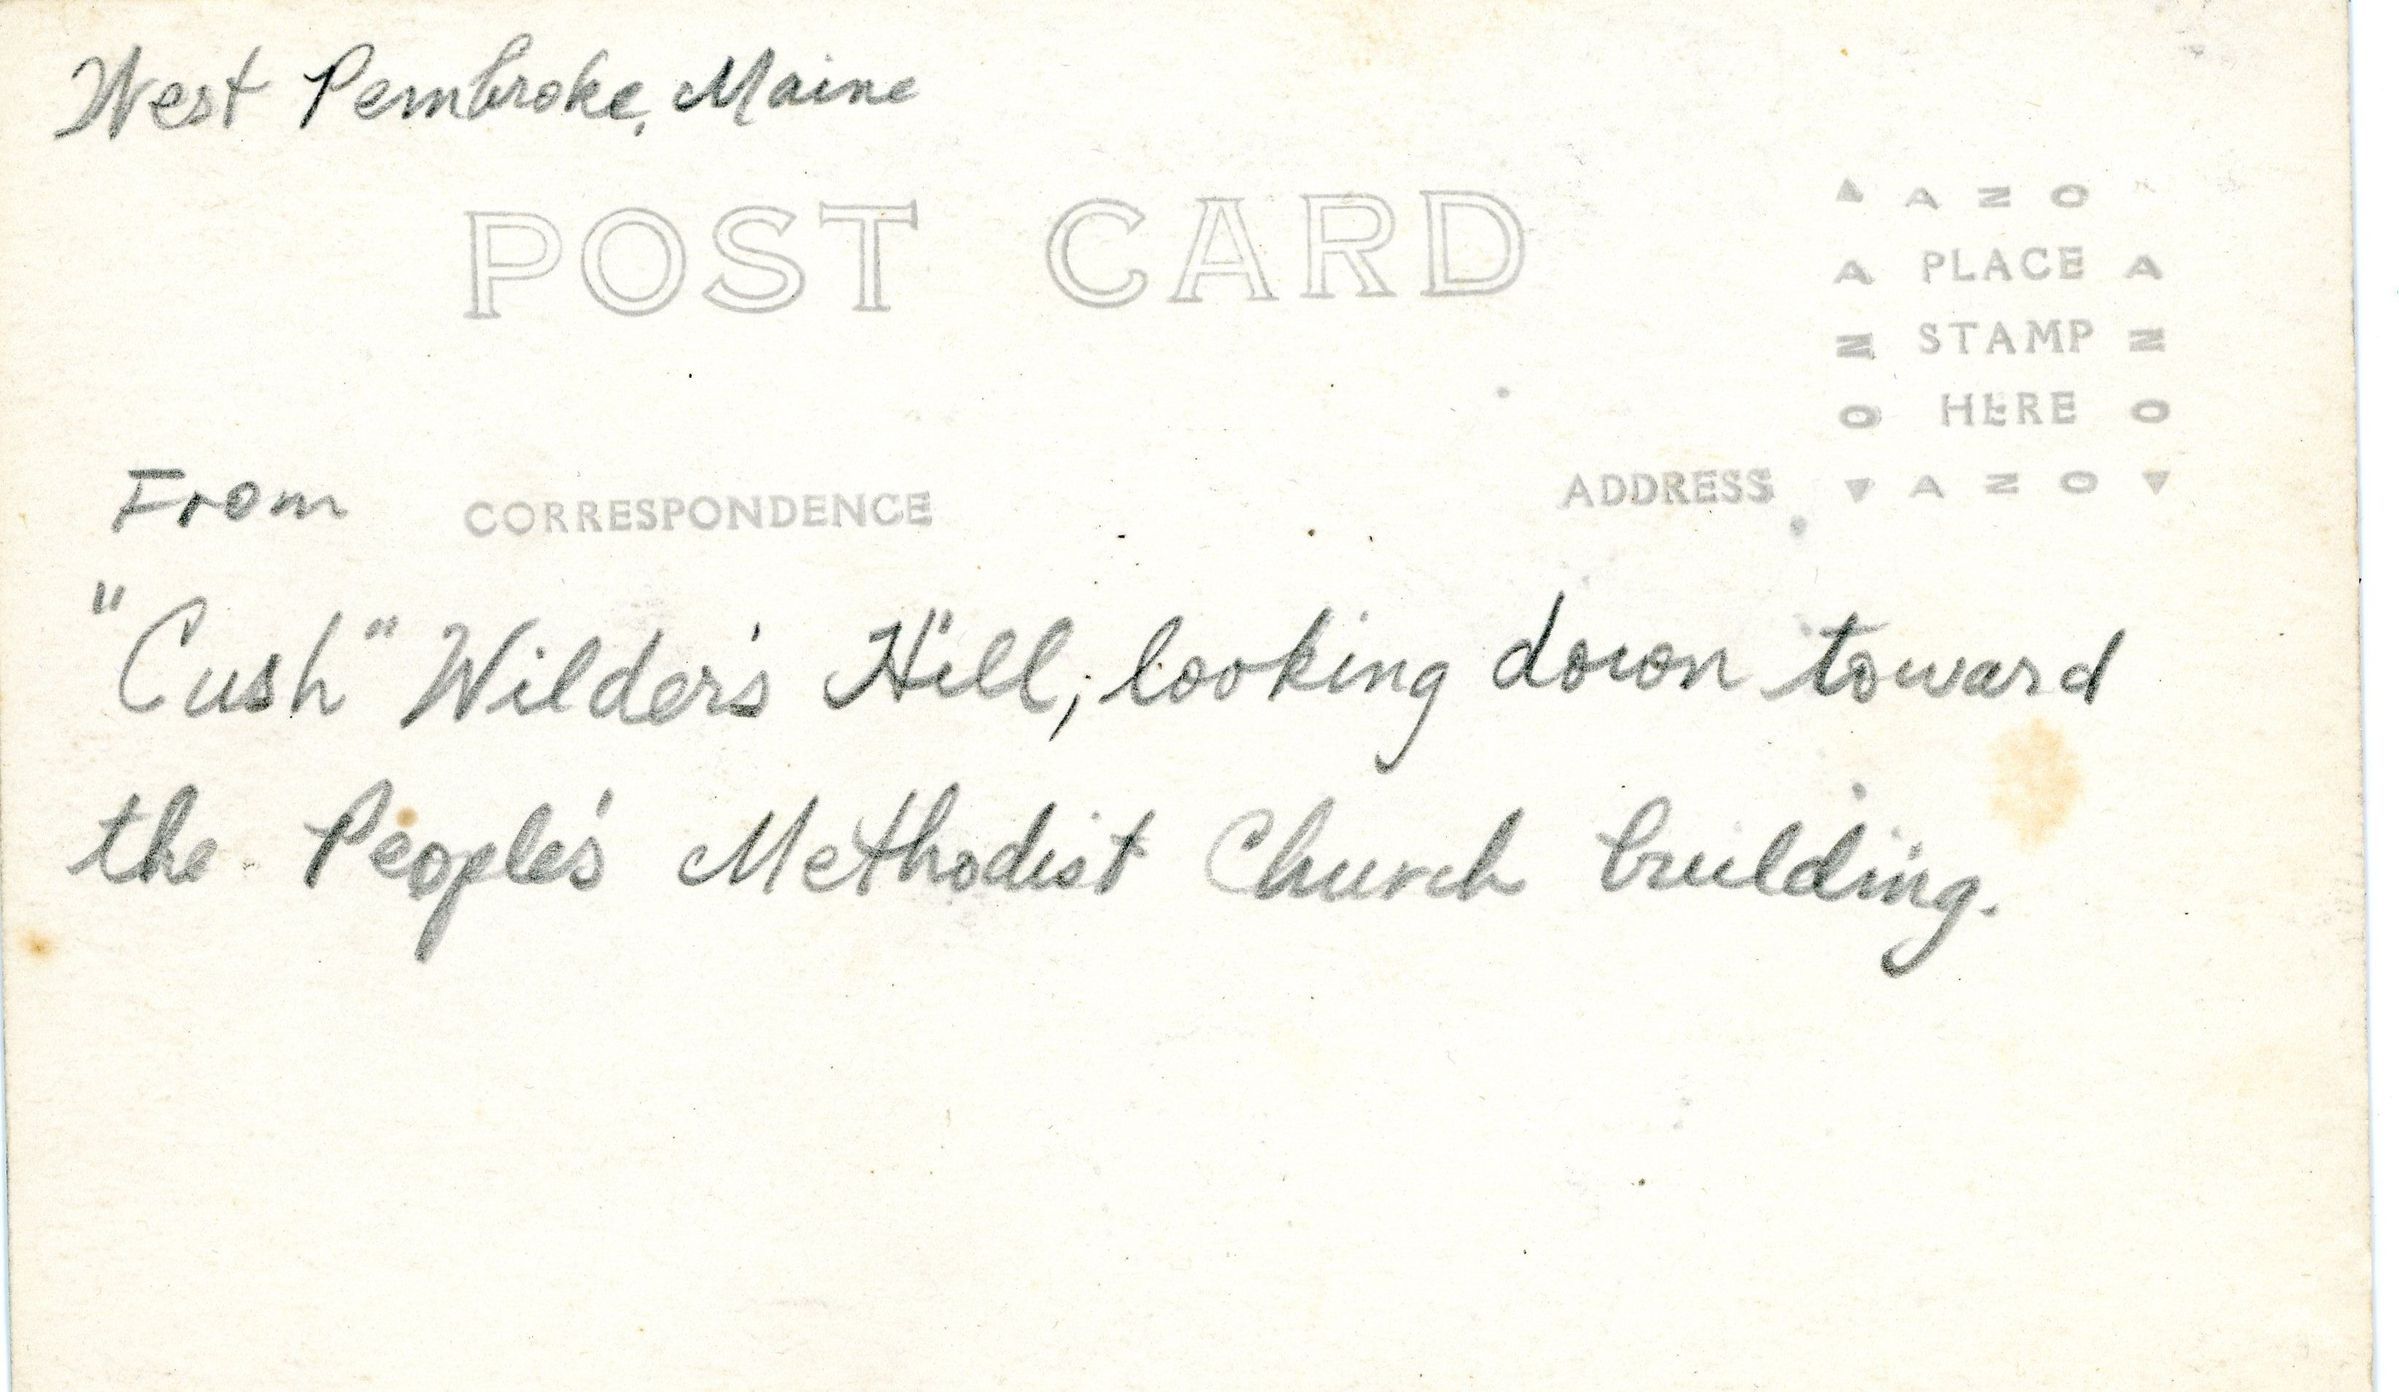 West Pembroke, Maine
POST CARD
A N O
A PLACE A
N STAMP N
O HERE O
A N O
From
CORRESPONDENCE
ADDRESS
"Cush" Wilder's Hill, looking down toward
the People's Methodist Church building.